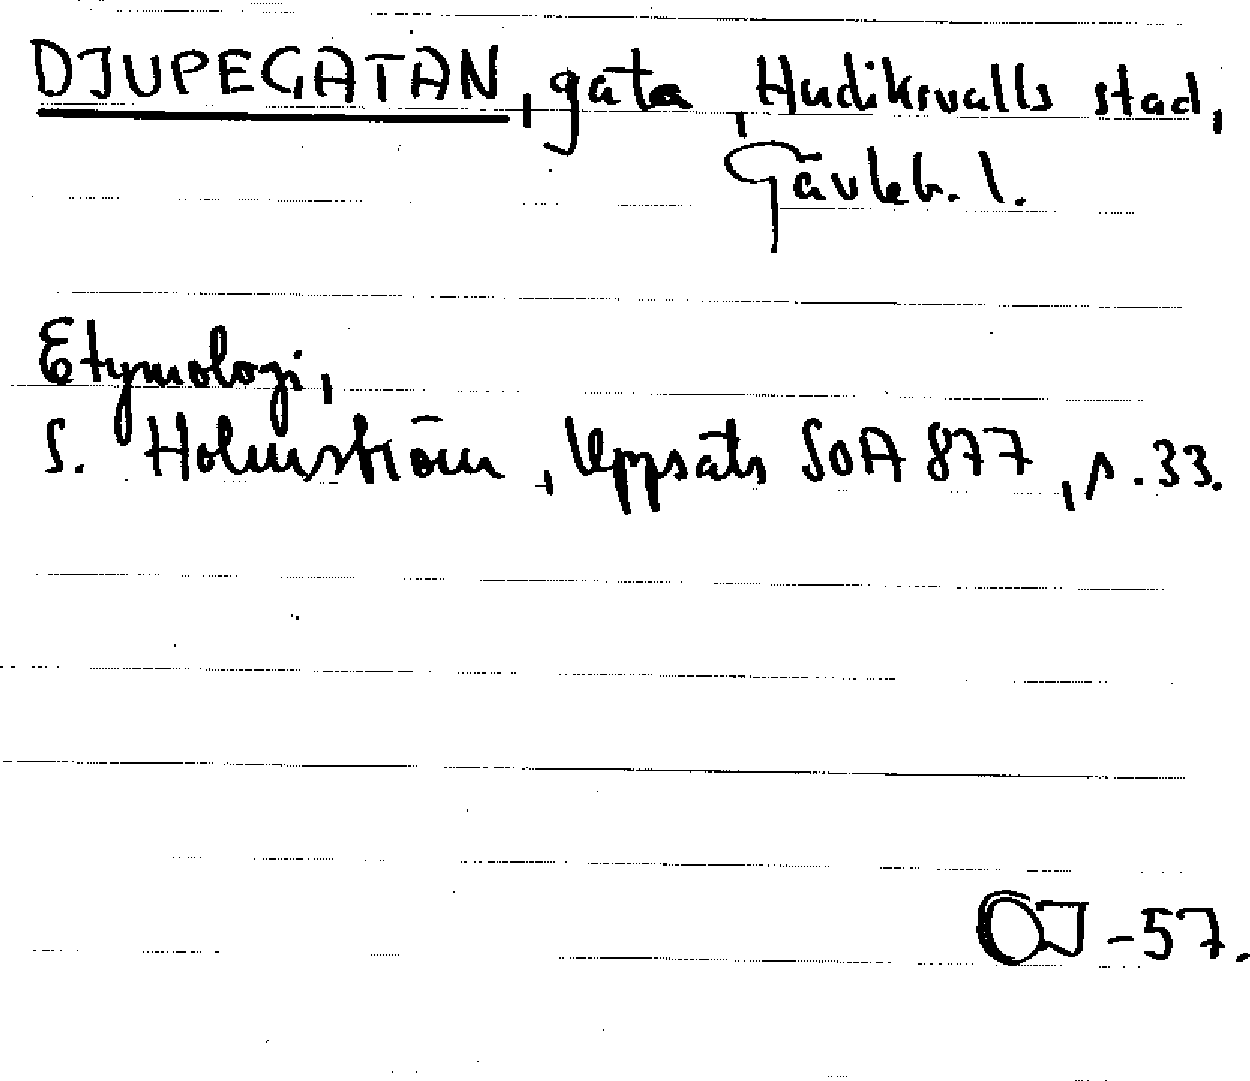 DJUPEGATAN, gata, Hudiksvalls stad,
Gävleb. l.
Etymologi,
S. Holmström, Uppsats SOA 877, s. 33.
OJ -57.